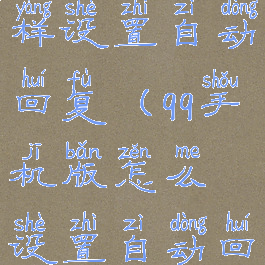 yàng shè zhì zì dòng
样设置自动
huí fù shǒu
回复（qq手
jī bǎn zěn me
机版怎么
shè zhì zì dòng huí
设置自动回